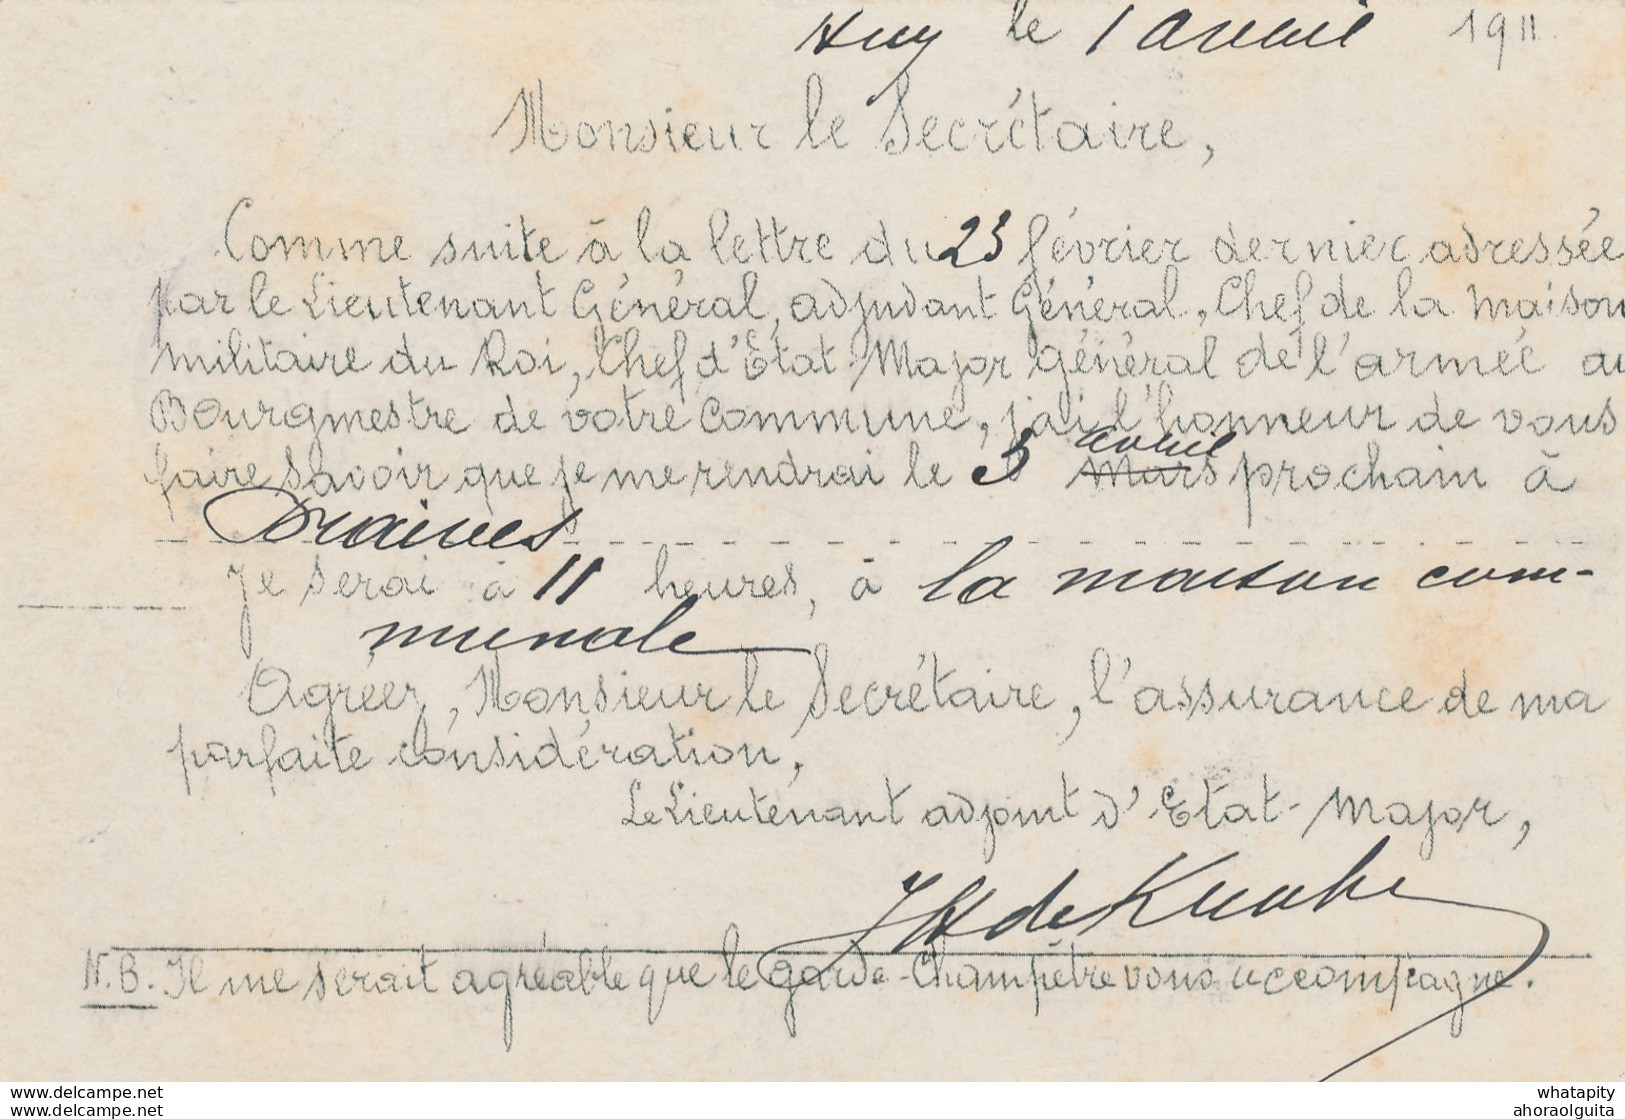 Huy le 1 avril 1911
Monsieur le Secrétaire,
Comme suite à la lettre du 23 février dernier adressée
par le Lieutenant Général, adjudant Général, Chef de la Maison
militaire du Roi, Chef d'Etat-Major Général de l'armée au
Bourgmestre de votre commune, j'ai l'honneur de vous
avril
faire savoir que je me rendrai le 3 Mars prochain à
Braives
Je serai à 11 heures, à la maison com-
munale
Agréez, Monsieur le Secrétaire, l'assurance de ma
parfaite considération,
Le Lieutenant adjoint d'Etat-Major,
N.B. Il me serait agréable que le garde-Champêtre vous accompagne.
whatapity
ahoraolguita
delcampe.net
delcampe.net